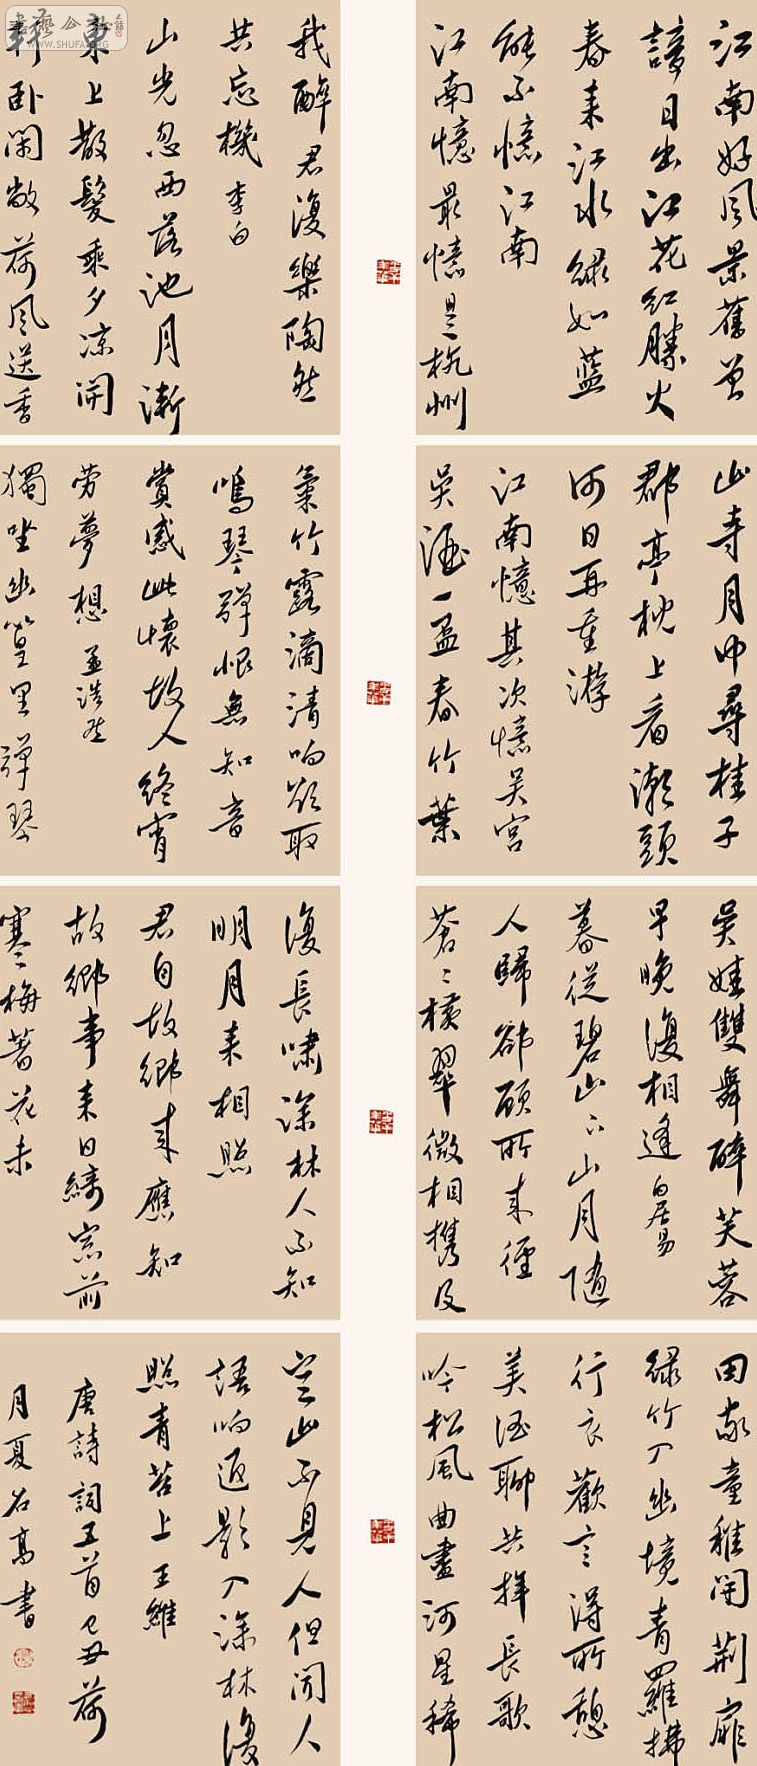 江南好风景舊曾
諳日出江花红勝火
春来江水緑如藍
能不憶江南
江南憶最憶是杭州
山寺月中尋桂子
郡亭枕上看潮頭
何日再重游
江南憶其次憶吴宫
吴酒一盃春竹葉
吴娃雙舞醉芙蓉
早晚復相逢 白居易
暮從碧山下山月随
人歸卻顧所来徑
蒼〻横翠微相携及
田家童稚開荆扉
緑竹入幽境青羅拂
行衣歡言得所憩
美酒聊共揮長歌
吟松風曲盡河星稀
我醉君復樂陶然
共忘機 李白
山光忽西落池月漸
東上散髮乘夕凉開
軒卧閑敞荷風送香
氣竹露滴清响欲取
鳴琴彈恨無知音
賞感此懷故人終宵
劳夢想 孟浩然
獨坐幽篁里彈琴
復長嘯深林人不知
明月来相照
君自故鄉来應知
故鄉事来日綺窓前
寒梅著花未
空山不見人但聞人
語响返影入深林復
照青苔上 王維
唐詩詞五首己丑荷
月夏石高書
WWW.SHUFA.ORG